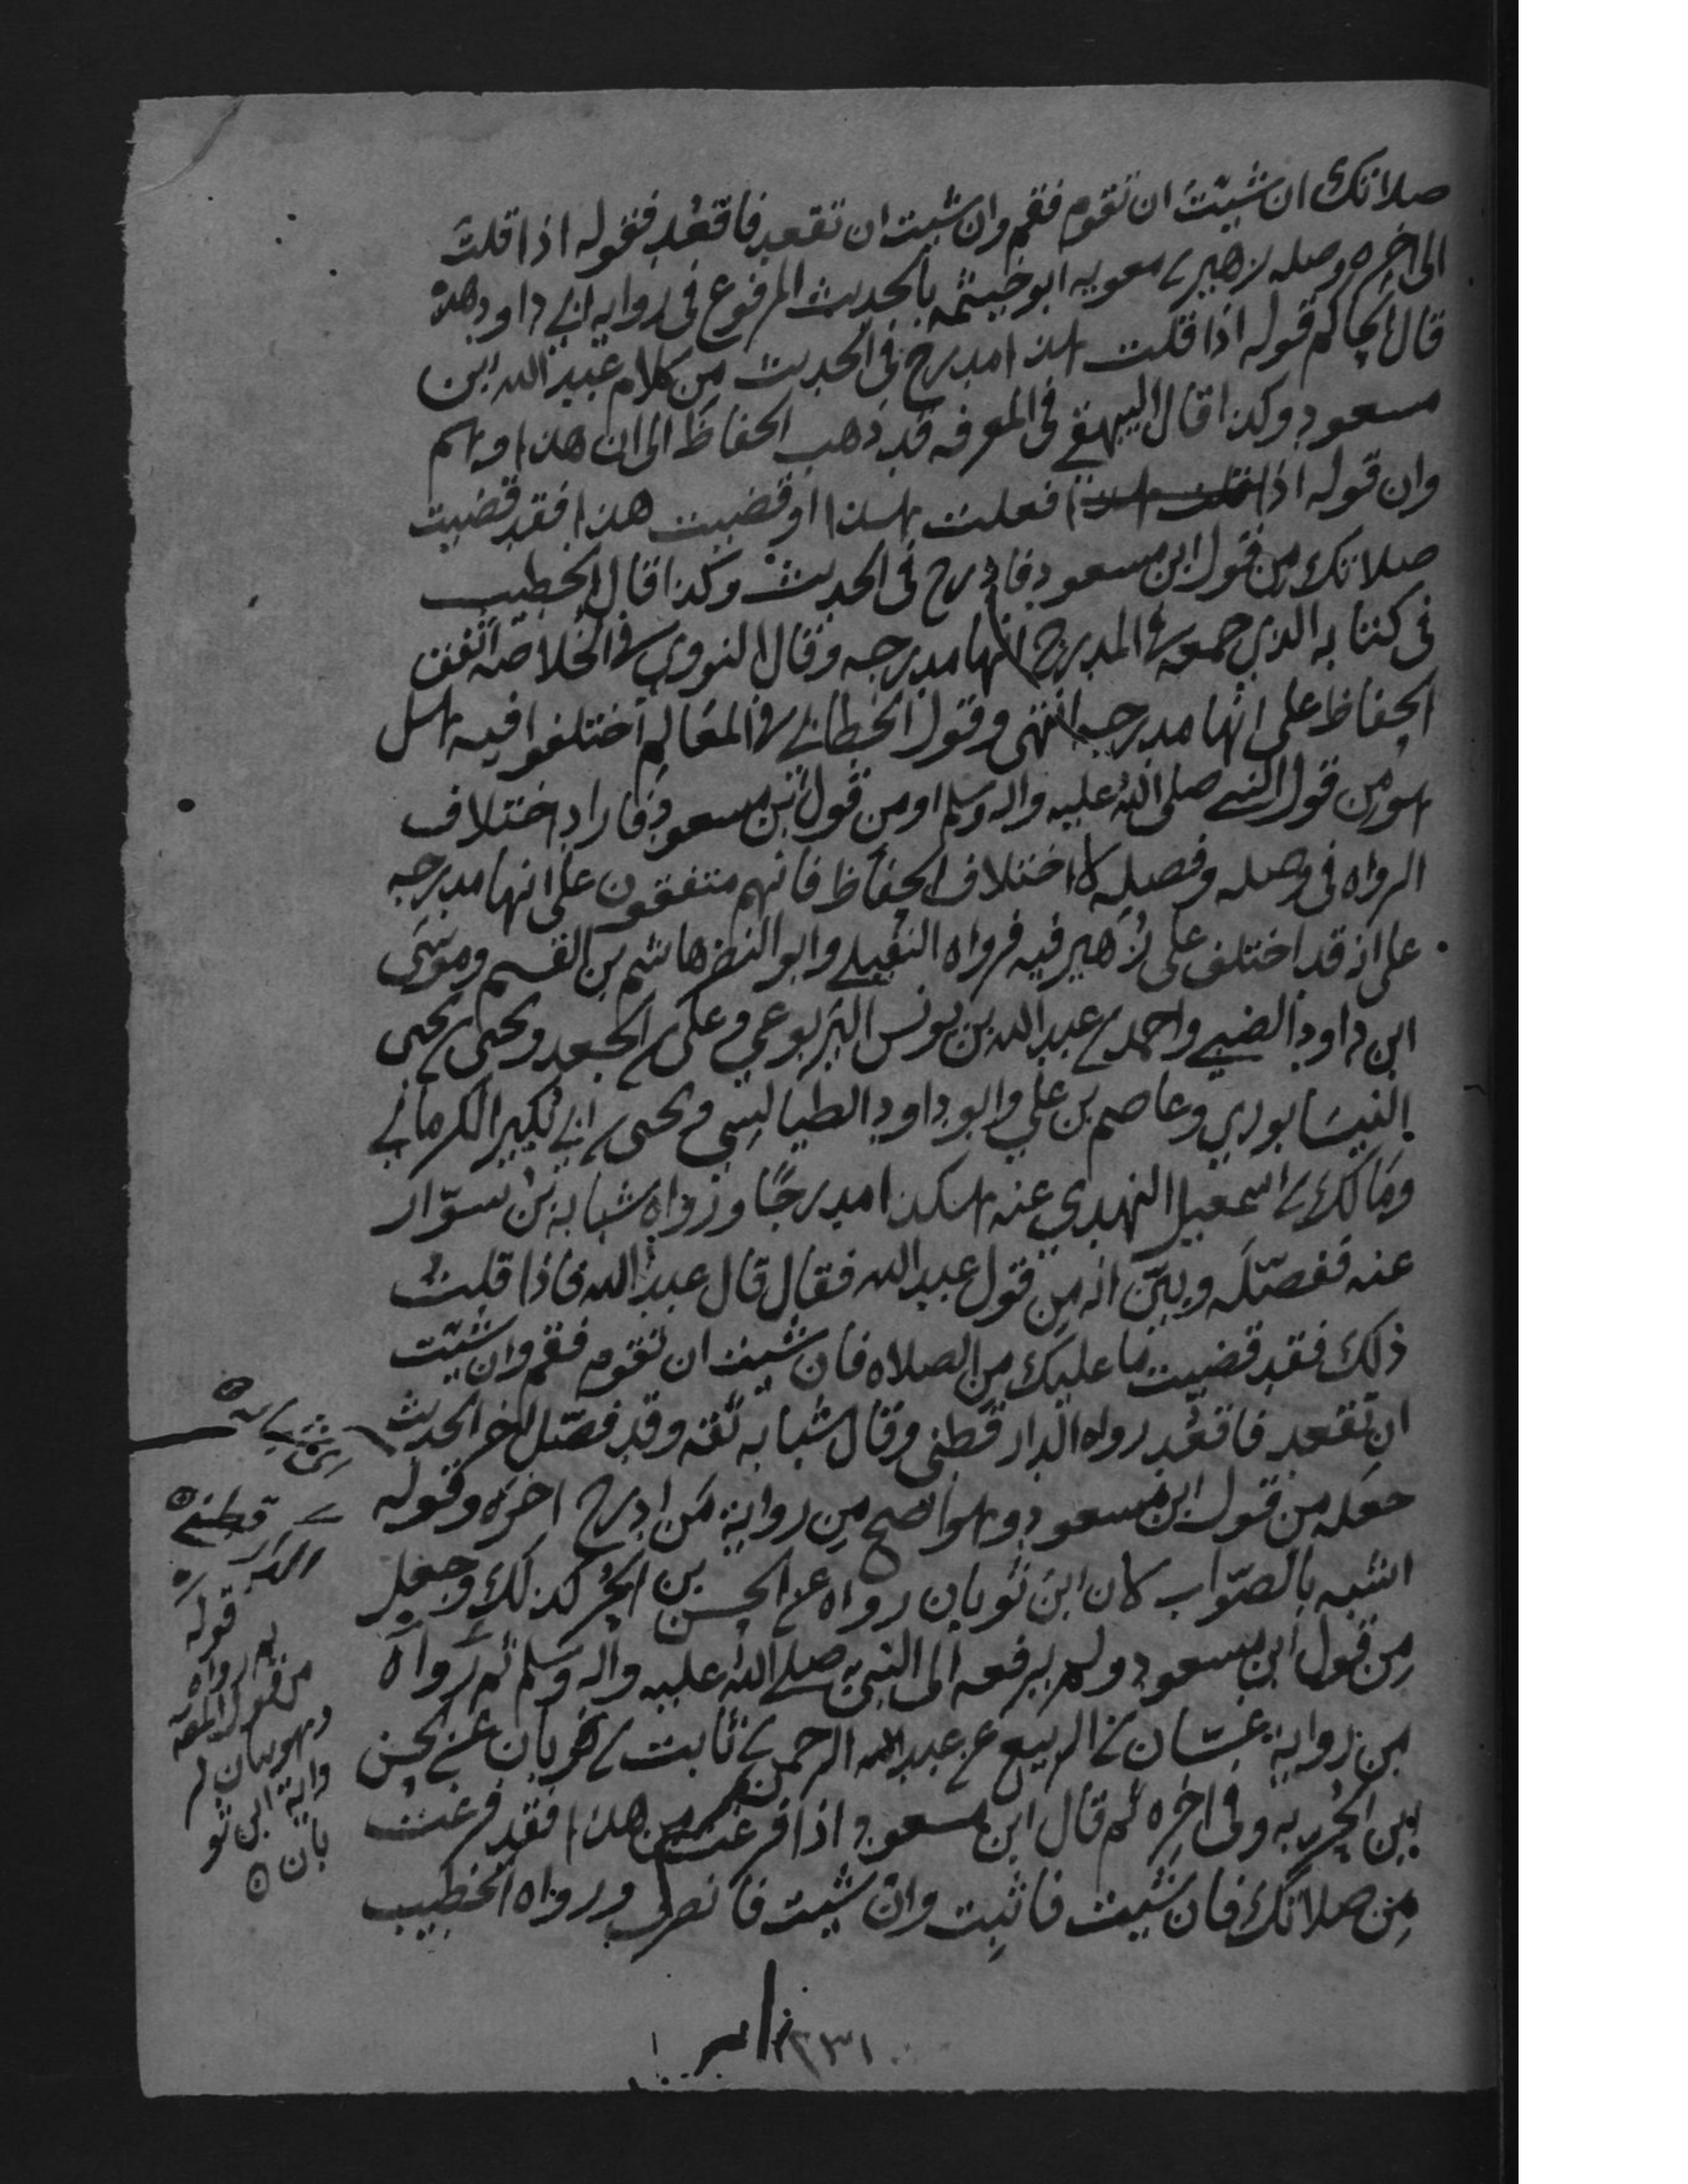 صلاتك ان شيت ان تقوم فقم وان شيت ان تقعد فاقعد فقوله اذا قلت
الى اخره وصله زهير بن معويه ابو خيثمه بالحديث المرفوع في روايه ابي داود هذه
قال الحاكم قوله اذا قلت هذا مدرج في الحديث من كلام عبد الله ابن
مسعود وكذا قال البيهقي في المعرفه قد ذهب الحفاظ الى ان هذا وهم
وان قوله اذا فعلت هذا او قضيت هذا فقد قضيت
صلاتك من قول ابن مسعود فادرج في الحديث وكذا قال الخطيب
في كتابه الذي جمعه في المدرج انها مدرجه وقال النووي في الخلاصه اتفق
الحفاظ على انها مدرجه انتهى وقول الخطابي في المعالم اختلفوا فيه هل
هو من قول النبي صلى الله عليه واله وسلم او من قول ابن مسعود فاراد اختلاف
الرواه في وصله وفصله لا اختلاف الحفاظ فانهم متفقون على انها مدرجه
على انه قد اختلف على زهير فيه فرواه النفيلي وابو النضر هاشم بن القسم وموسى
ابن داود الضبي واحمد بن عبد الله بن يونس اليربوعي وعلي بن الجعد ويحيى بن يحيى
النيسابوري وعاصم بن علي وابو داود الطيالسي ويحيى بن ابي بكير الكرماني
ومالك بن اسمعيل النهدي عنه هكذا مدرجا ورواه شبابه بن سوّار
عنه ففصّله وبيّن انه من قول عبد الله فقال قال عبد الله فاذا قلت
ذلك فقد قضيت ما عليك من الصلاه فان شيت ان تقوم فقم وان شيت
ان تقعد فاقعد رواه الدارقطني وقال شبابه ثقه وقد فصّل اخر الحديث
جعله من قول ابن مسعود وهو اصح من رواية من ادرج اخره وقوله
اشبه بالصّواب لان ابن ثوبان رواه عن الحسن بن الحر كذلك وجعله
من قول ابن مسعود ولم يرفعه الى النبي صلى الله عليه واله وسلم ثم رواه
من رواية غسّان بن الربيع عن عبد الرحمن بن ثابت بن ثوبان عن الحسن
بن الحر به وفي اخره ثم قال ابن مسعود اذا فرغت من هذا فقد فرغت
من صلاتك فان شيت فاثبت وان شيت فانصرف ورواه الخطيب
اي شبابه
اي الدار قطني
قوله
ثم رواه
من قول
وهو بيان لر
واية ابن ثو
بان